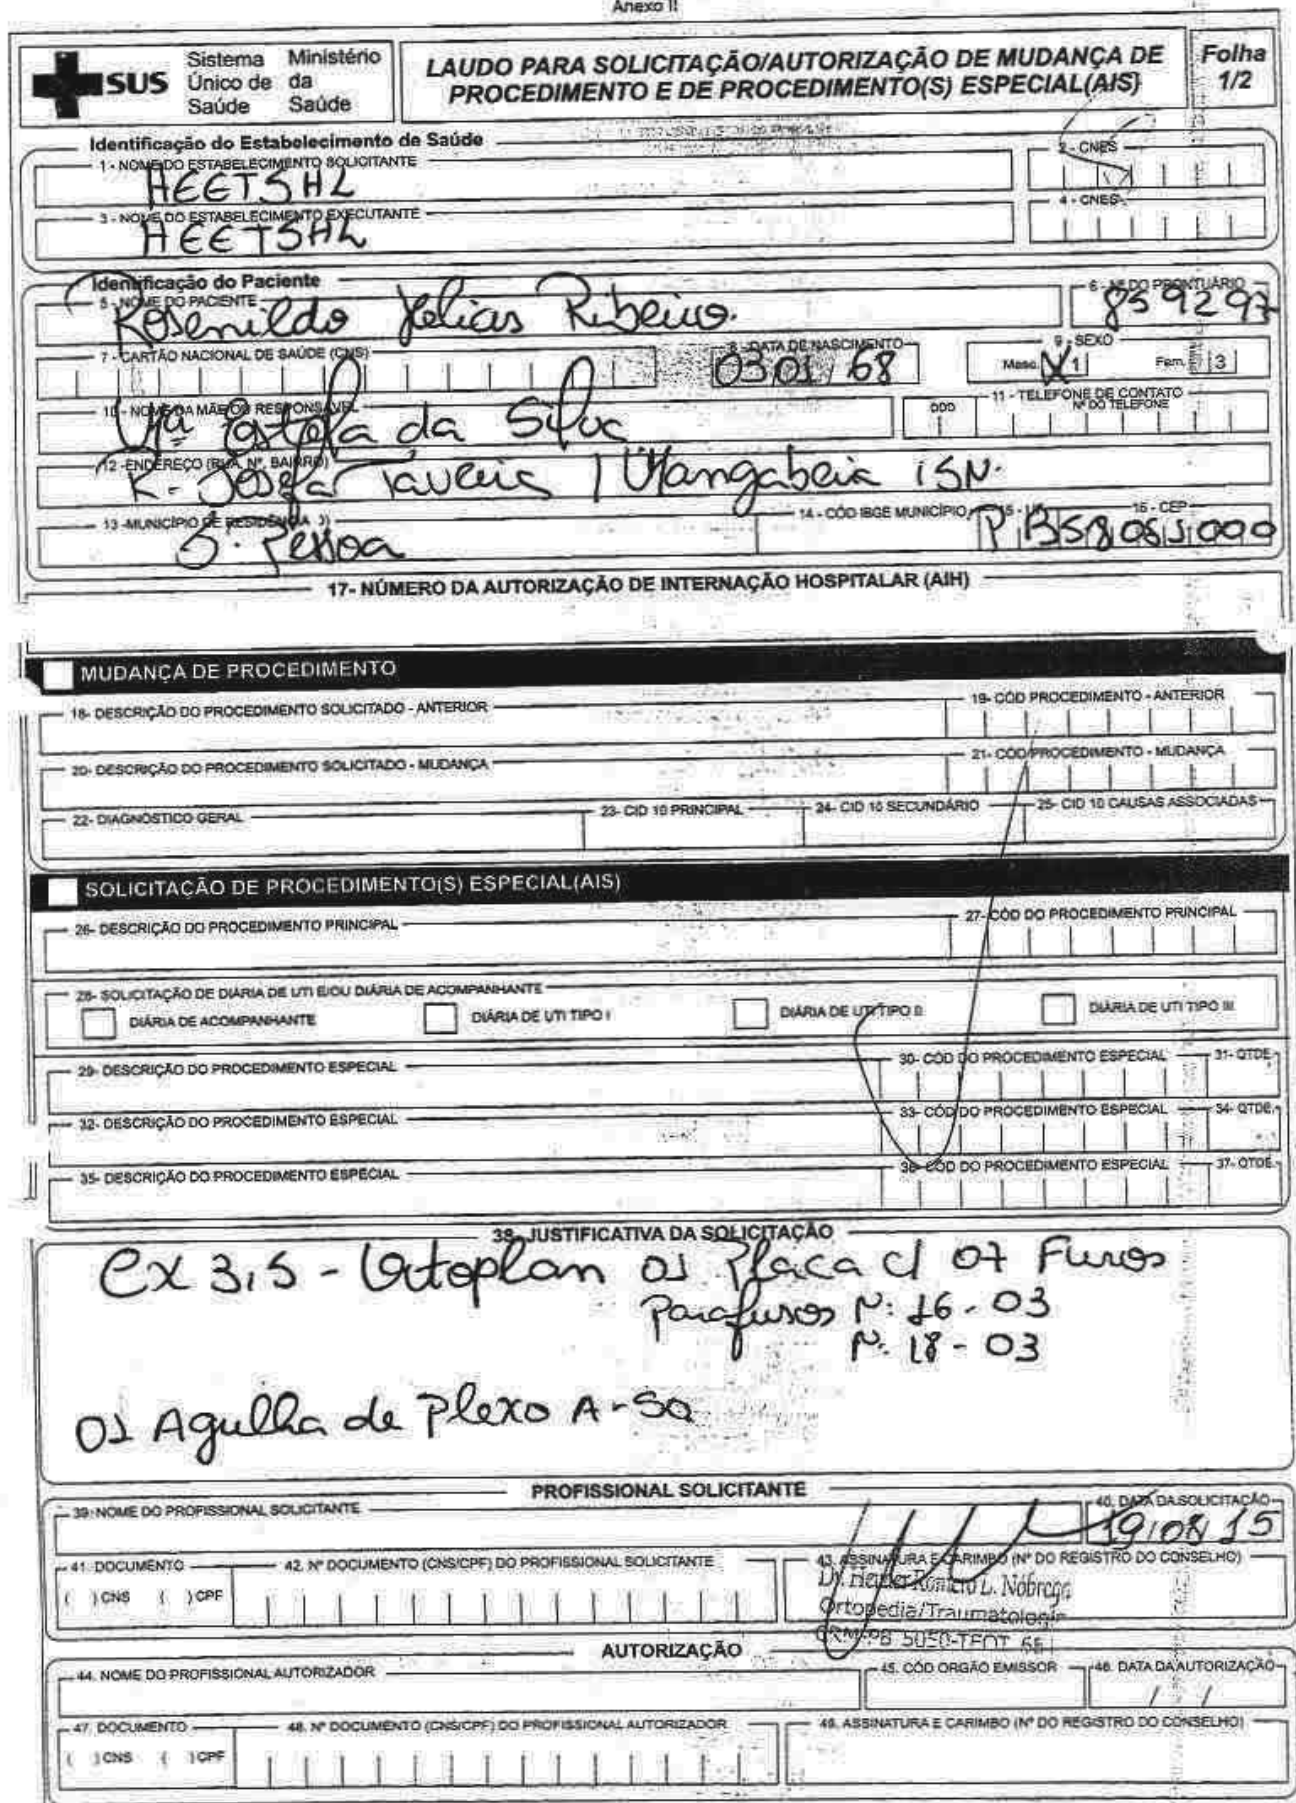 Anexo II
SUS Sistema Único de Saúde Ministério da Saúde
LAUDO PARA SOLICITAÇÃO/AUTORIZAÇÃO DE MUDANÇA DE PROCEDIMENTO E DE PROCEDIMENTO(S) ESPECIAL(AIS)
Folha 1/2
Identificação do Estabelecimento de Saúde
1 - NOME DO ESTABELECIMENTO SOLICITANTE
2 - CNES
HEETSHL
3 - NOME DO ESTABELECIMENTO EXECUTANTE
4 - CNES
HEETSHL
Identificação do Paciente
5 - NOME DO PACIENTE
6 - Nº DO PRONTUÁRIO
Rosenildo Ribeiro.
859297
7 - CARTÃO NACIONAL DE SAÚDE (CNS)
8 - DATA DE NASCIMENTO
9 - SEXO
03 01 68
Masc. X 1 Fem. 3
10 - NOME DA MÃE OU RESPONSÁVEL
11 - TELEFONE DE CONTATO
DDD Nº DO TELEFONE
Mª Estela da Silva
12 - ENDEREÇO (RUA, Nº, BAIRRO)
R. Josefa Taveira / Mangabeira ISN.
13 - MUNICÍPIO DE RESIDÊNCIA
14 - CÓD IBGE MUNICÍPIO
15 - UF
16 - CEP
J. Pessoa
PB 58 051 000
17- NÚMERO DA AUTORIZAÇÃO DE INTERNAÇÃO HOSPITALAR (AIH)
MUDANÇA DE PROCEDIMENTO
18- DESCRIÇÃO DO PROCEDIMENTO SOLICITADO - ANTERIOR
19- CÓD PROCEDIMENTO - ANTERIOR
20- DESCRIÇÃO DO PROCEDIMENTO SOLICITADO - MUDANÇA
21- CÓD PROCEDIMENTO - MUDANÇA
22- DIAGNÓSTICO GERAL
23- CID 10 PRINCIPAL
24- CID 10 SECUNDÁRIO
25- CID 10 CAUSAS ASSOCIADAS
SOLICITAÇÃO DE PROCEDIMENTO(S) ESPECIAL(AIS)
26- DESCRIÇÃO DO PROCEDIMENTO PRINCIPAL
27- CÓD DO PROCEDIMENTO PRINCIPAL
28- SOLICITAÇÃO DE DIÁRIA DE UTI E/OU DIÁRIA DE ACOMPANHANTE
DIÁRIA DE ACOMPANHANTE
DIÁRIA DE UTI TIPO I
DIÁRIA DE UTI TIPO II
DIÁRIA DE UTI TIPO III
29- DESCRIÇÃO DO PROCEDIMENTO ESPECIAL
30- CÓD DO PROCEDIMENTO ESPECIAL
31- QTDE
32- DESCRIÇÃO DO PROCEDIMENTO ESPECIAL
33- CÓD DO PROCEDIMENTO ESPECIAL
34- QTDE.
35- DESCRIÇÃO DO PROCEDIMENTO ESPECIAL
36- CÓD DO PROCEDIMENTO ESPECIAL
37- QTDE.
38- JUSTIFICATIVA DA SOLICITAÇÃO
Cx 3,5 - 01 Placa c/ 07 Furos
Parafusos Nº: 16 - 03
Nº. 18 - 03
01 Agulha de Plexo A-50
PROFISSIONAL SOLICITANTE
39- NOME DO PROFISSIONAL SOLICITANTE
40. DATA DA SOLICITAÇÃO
19/08/15
41. DOCUMENTO
( ) CNS ( ) CPF
42. Nº DOCUMENTO (CNS/CPF) DO PROFISSIONAL SOLICITANTE
43. ASSINATURA E CARIMBO (Nº DO REGISTRO DO CONSELHO)
Dr. L. Nóbrega
Ortopedia/Traumatologia
CRM-PB 5050-TEOT
AUTORIZAÇÃO
44. NOME DO PROFISSIONAL AUTORIZADOR
45. CÓD ORGÃO EMISSOR
46. DATA DA AUTORIZAÇÃO
/ /
47. DOCUMENTO
( ) CNS ( ) CPF
48. Nº DOCUMENTO (CNS/CPF) DO PROFISSIONAL AUTORIZADOR
49. ASSINATURA E CARIMBO (Nº DO REGISTRO DO CONSELHO)